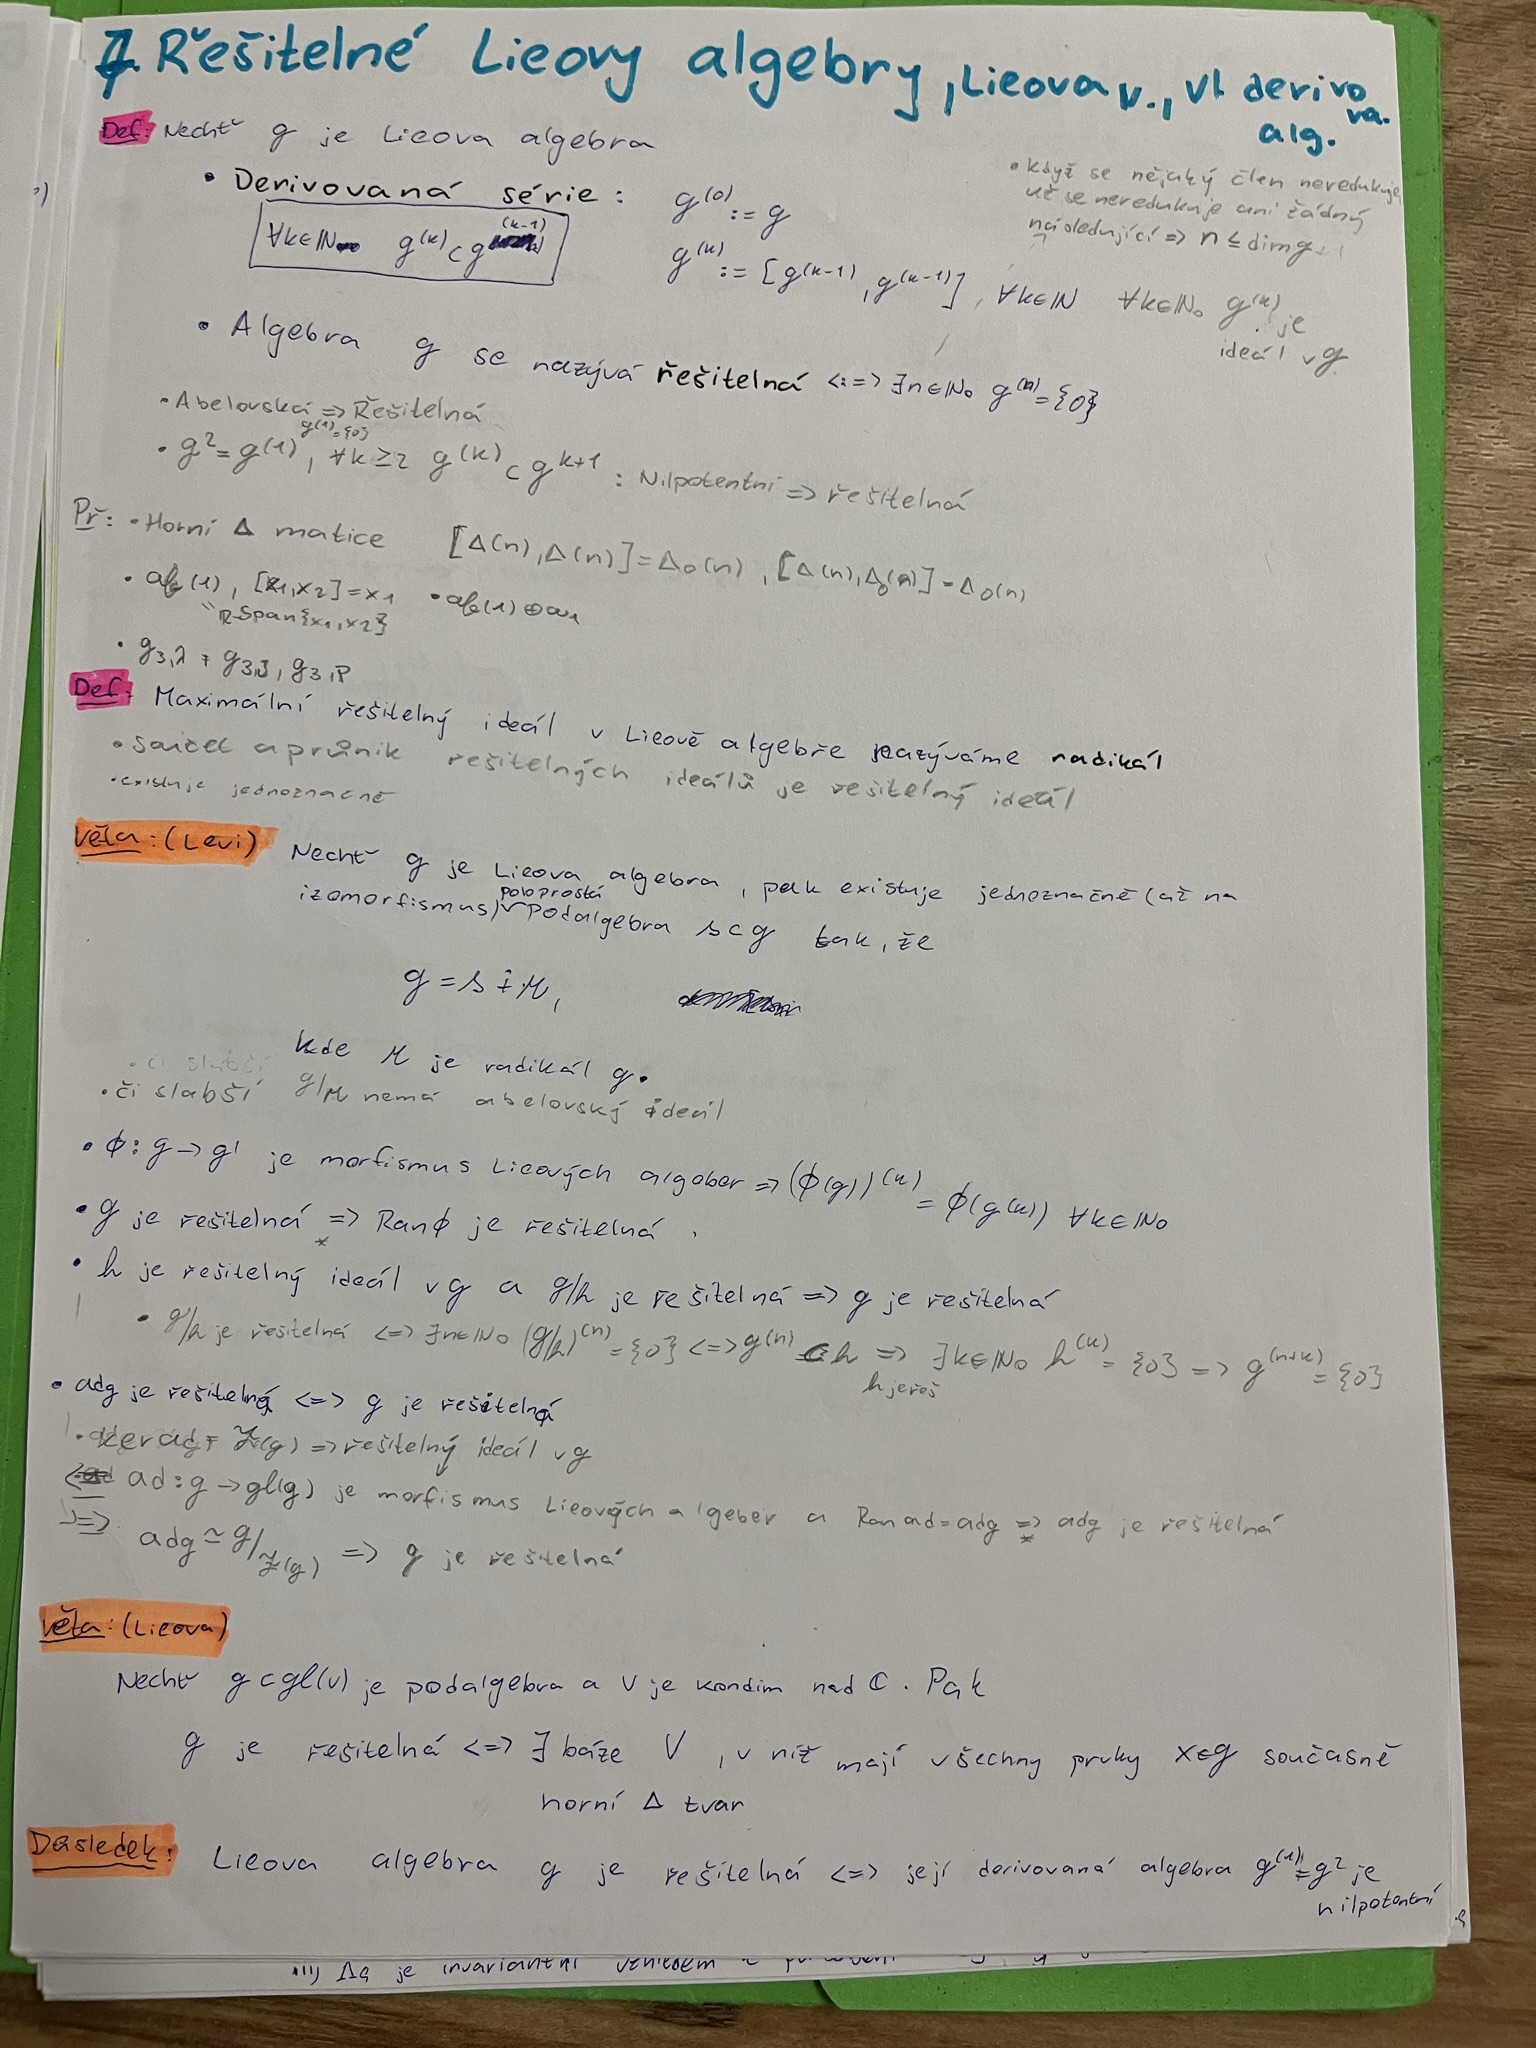 7. Řešitelné Lieovy algebry, Lieova v., vl. derivo
va.
alg.
Def: Nechť g je Lieova algebra
• Když se nějaký člen neredukuje,
už se neredukuje ani žádný
následující => n ≤ dim g+1
• Derivovaná série: g^(0) := g
∀k∈N g^(k) ⊂ g^(k-1)
g^(k) := [g^(k-1), g^(k-1)], ∀k∈N ∀k∈N₀ g^(k) je
ideál v g
• Algebra g se nazývá řešitelná <:=> ∃n∈N₀ g^(n) = {0}
• Abelovská => Řešitelná
g^(1)={0}
• g² = g^(1), ∀k≥2 g^(k) ⊂ g^k+1 : Nilpotentní => řešitelná
Př: • Horní Δ matice [Δ(n),Δ(n)] = Δ₀(n), [Δ(n),Δ₀(n)] = Δ₀(n)
• af(1), [x₁,x₂]=x₁ • af(1) ⊕ a₁
R-Span{x₁,x₂}
Def: Maximální řešitelný ideál v Lieově algebře nazýváme radikál
• součet a průnik řešitelných ideálů je řešitelný ideál
• existuje jednoznačně
Věta: (Levi) Nechť g je Lieova algebra, pak existuje jednoznačně (až na
izomorfismus) poloprostá podalgebra s⊂g tak, že
g = s ∔ r,
kde r je radikál g.
• či slabší
• či slabší g/r nemá abelovský ideál
• ϕ: g → g' je morfismus Lieových algeber => (ϕ(g))^(k) = ϕ(g^(k)) ∀k∈N₀
• g je řešitelná => Ran ϕ je řešitelná.
*
• h je řešitelný ideál v g a g/h je řešitelná => g je řešitelná
• g/h je řešitelná <=> ∃n∈N₀ (g/h)^(n) = {0} <=> g^(n) ⊂ h => ∃k∈N₀ h^(k) = {0} => g^(n+k) = {0}
h je řeš
• ad g je řešitelná <=> g je řešitelná
• ker ad = Z(g) => řešitelný ideál v g
<= ad: g → gl(g) je morfismus Lieových algeber a Ran ad = ad g => ad g je řešitelná
*
=> ad g ≃ g/Z(g) => g je řešitelná
Věta: (Lieova)
Nechť g⊂gl(V) je podalgebra a V je kondim nad C. Pak
g je řešitelná <=> ∃ báze V, v níž mají všechny prvky x∈g současně
horní Δ tvar
Důsledek: Lieova algebra g je řešitelná <=> její derivovaná algebra g^(1) = g² je
nilpotentní